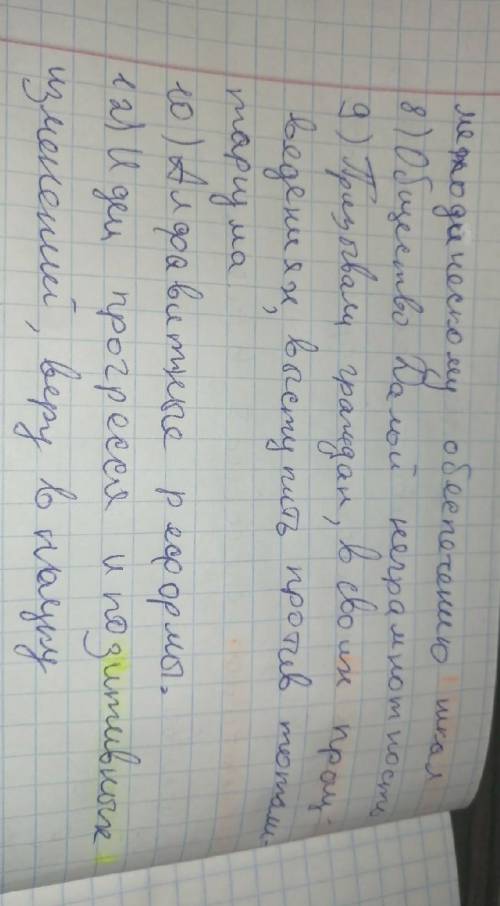 методическому обеспечению школ
8) Общество Далой неграмнотность
9) Призывали граждан, в своих прой-
ведениях, выступить против тотали-
таризма.
10) Алфавитные реформы.
12) Идеи прогресса и позитивных
изменений, веру в науку